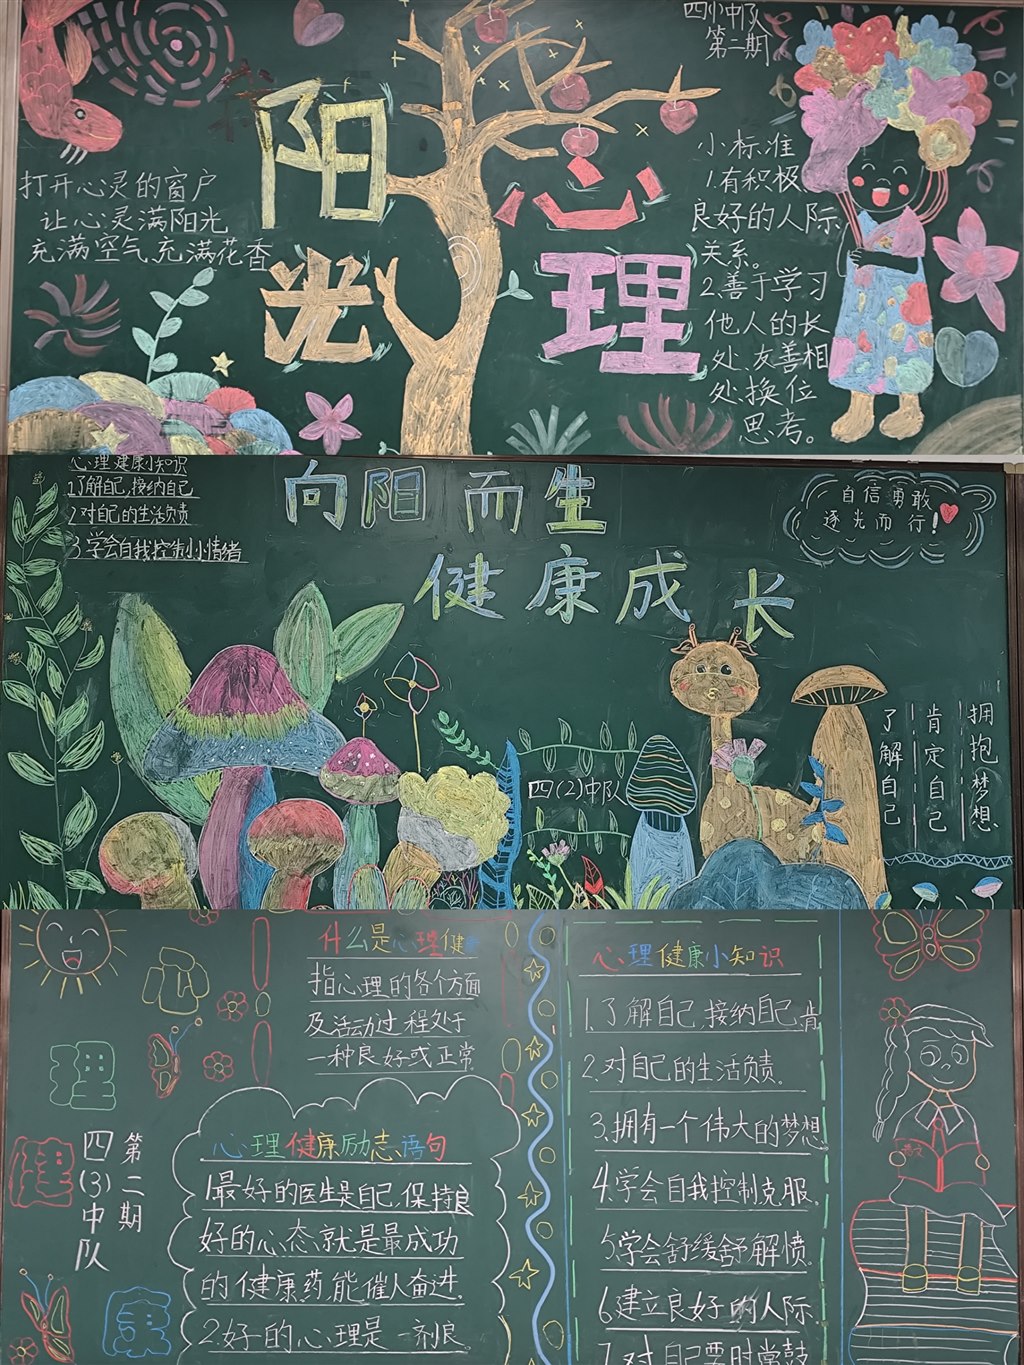 四(1)中队
第二期
阳光
心理
打开心灵的窗户
让心灵满阳光
充满空气、充满花香
小标准
1.有积极、
良好的人际
关系。
2.善于学习
他人的长
处、友善相
处、换位
思考。
心理健康小知识
1.了解自己,接纳自己
2.对自己的生活负责
3.学会自我控制小情绪
向阳而生
健康成长
自信勇敢
逐光而行!
四(2)中队
拥抱梦想
肯定自己
了解自己
心
理
健
康
第二期
四(3)中队
什么是心理健康
指心理的各个方面
及活动过程处于
一种良好或正常
心理健康励志语句
1.最好的医生是自己,保持良
好的心态就是最成功
的健康药,能催人奋进.
2.好的心理是一剂良
心理健康小知识
1.了解自己,接纳自己,肯
2.对自己的生活负责.
3.拥有一个伟大的梦想
4.学会自我控制克服.
5.学会舒缓舒解愤
6.建立良好的人际.
7.对自己要时常鼓
语文